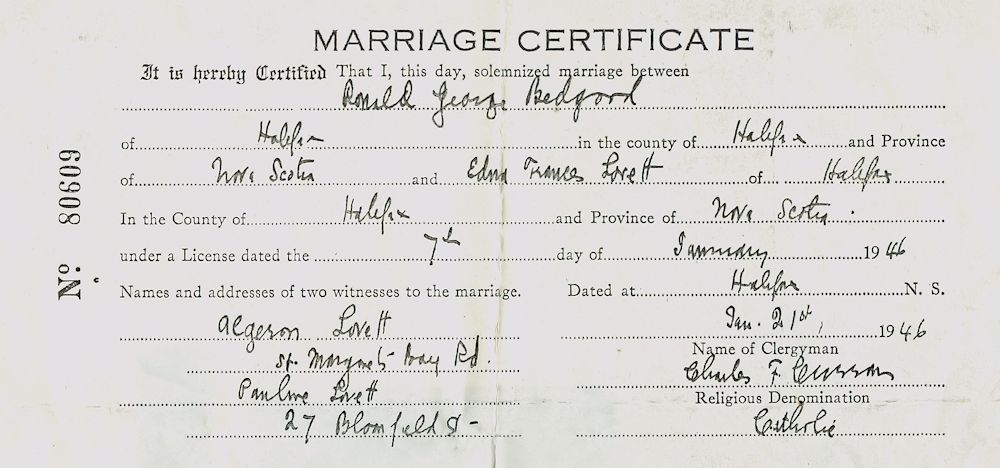 MARRIAGE CERTIFICATE
It is hereby Certified That I, this day, solemnized marriage between
Ronald George Bedgord
of Halifax in the county of Halifax and Province
of Nova Scotia and Edna Frances Lovett of Halifax
In the County of Halifax and Province of Nova Scotia.
under a License dated the 7th day of January 1946
Names and addresses of two witnesses to the marriage. Dated at Halifax N. S.
Algeron Lovett Jan. 21st, 1946
Name of Clergyman
St. Margrets Bay Rd. Charles F Curran
Pauline Lovett Religious Denomination
27 Bloomfield St- Catholic
No. 80609